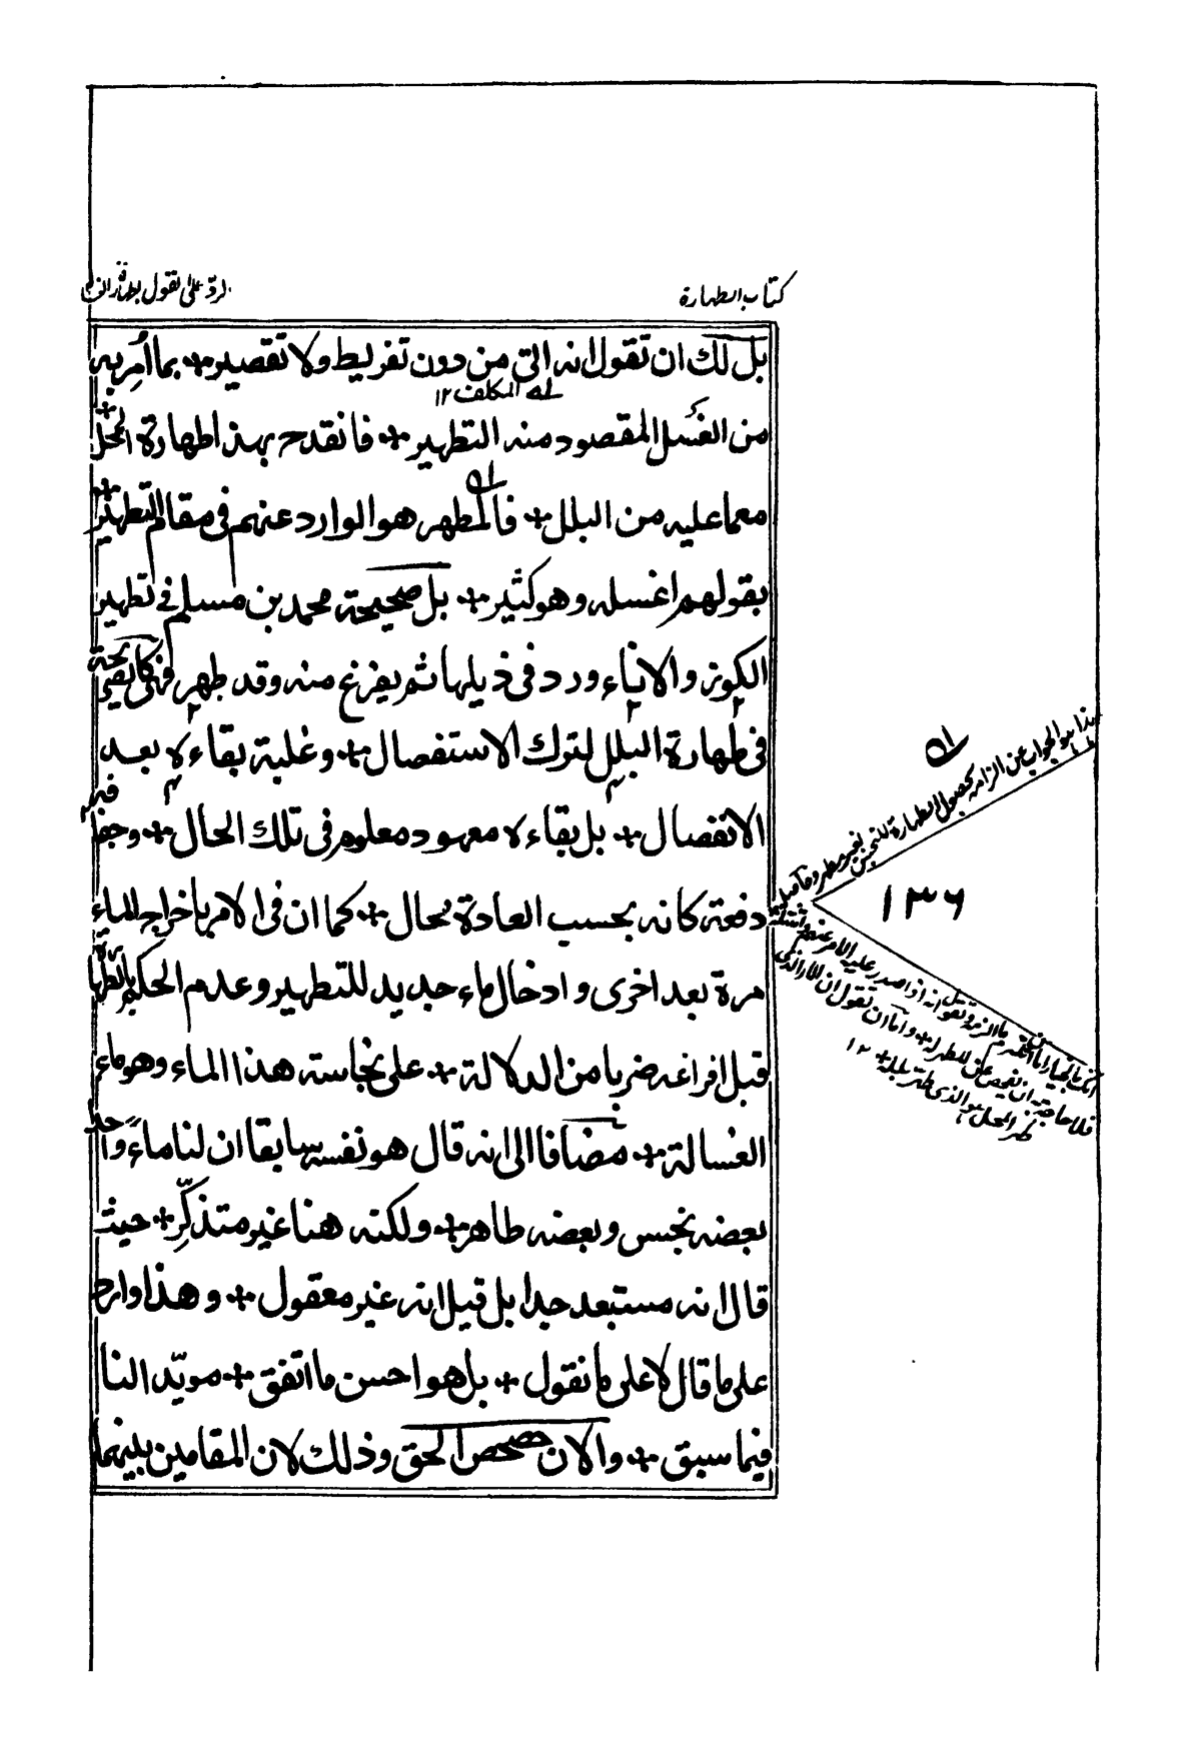 كتاب الطهارة
الرد على القول بطهارة
بل لك ان تقول انه اتى من دون تفريط ولا تقصير + بما اُمِر به
اى المكلف ١٢
من الغَسل المقصود منه التطهير + فانقدح بهذا طهارة المحل +
معما عليه من البلل + فالمطهر هو الوارد عنهم فى مقام التطهير +
بقولهم اغسله وهو كثير + بل صحيحة محمد بن مسلم فى تطهير
الكوز والاناء ورد فى ذيلها ثم يفرغ منه وقد طهر فهى كالصريحة
فى طهارة البلل لترك الاستفصال + وغلبة بقاءه بعد
الانفصال + بل بقاءه معهود معلوم فى تلك الحال + وجفافه
دفعة كانه بحسب العادة محال + كما ان فى الامر باخراج الماء
مرة بعد اخرى وادخال ماء جديد للتطهير وعدم الحكم بالطهارة
قبل افراغه ضربا من الدلالة + على نجاسة هذا الماء وهو ماء
الغسالة + مضافا الى انه قال هو نفسه سابقا ان لنا ماءً واحد
بعضه نجس وبعضه طاهر + ولكنه هنا غير متذكِّر + حيث
قال انه مستبعد جدا بل قيل انه غير معقول + وهذا وارد
على ما قال لا على ما نقول + بل هو احسن ما اتفق + مويّد النا
فيما سبق + والان حصحص الحق وذلك لان المقامين بينهما
هذا هو الجواب عن الزامه بحصول الطهارة للنجس بغير مطهر
١٣٦